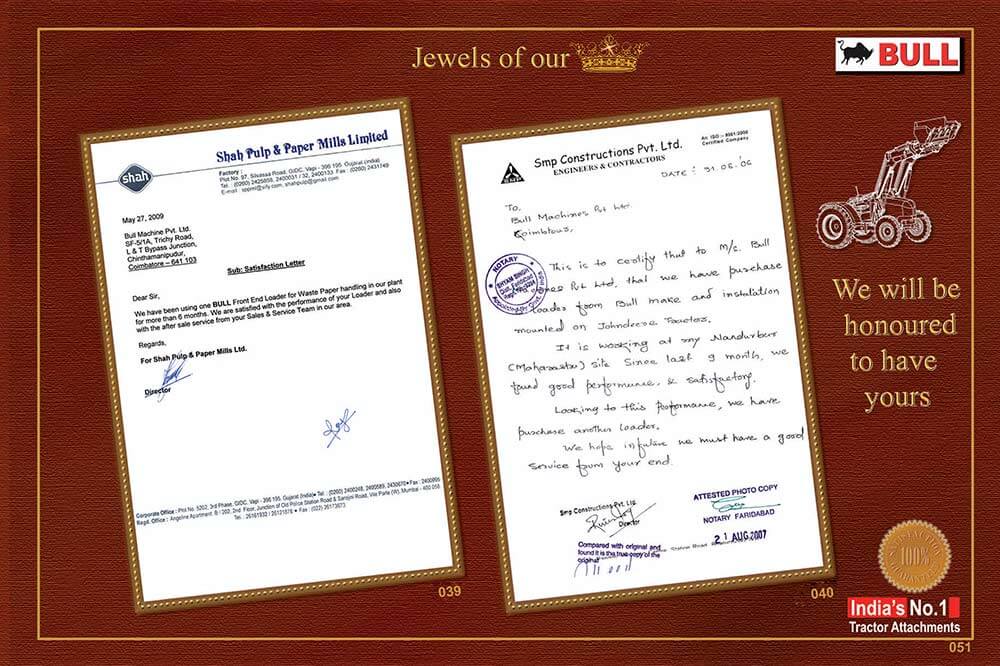 Jewels of our
BULL
Shah Pulp & Paper Mills Limited
shah
Factory :
Plot No. 97, Silvassa Road, GIDC, Vapi - 396 195. Gujarat (India)
Tel. : (0260) 2425858, 2400031 / 32, 2400133 Fax : (0260) 2431749
E-mail : sppml@sify.com, shahpulp@gmail.com
May 27, 2009
Bull Machine Pvt. Ltd.
SF-5/1A, Trichy Road,
L & T Bypass Junction,
Chinthamanipudur,
Coimbatore – 641 103
Sub: Satisfaction Letter
Dear Sir,
We have been using one BULL Front End Loader for Waste Paper handling in our plant
for more than 6 months. We are satisfied with the performance of your Loader and also
with the after sale service from your Sales & Service Team in our area.
Regards,
For Shah Pulp & Paper Mills Ltd.
Director
Corporate Office : Plot No. 5202, 3rd Phase, GIDC, Vapi - 396 195. Gujarat (India)
Regd. Office : Angeline Apartment, 2nd Floor, Junction of Old Police Station Road & Sarojini Road, Vile Parle (W), Mumbai - 400 056
039
Smp Constructions Pvt. Ltd.
ENGINEERS & CONTRACTORS
An ISO :- 9001:2000
Certified Company
DATE : 31.05.'06
To,
Bull Machines Pvt Ltd.
Coimbtous,
This is to certify that to M/s. Bull
Pvt Ltd. that we have purchase
Loader from Bull make and instulation
mounted on Johndeere Tractors.
It is working at my Nandurbar
(Maharastra) site Since last 9 month, we
found good performance & satisfactory.
Looking to this Performance, we have
purchase another loader.
We hope in future we must have a good
Service from your end.
NOTARY
SHYAM SINGH
Smp Constructions Pvt. Ltd
Director
ATTESTED PHOTO COPY
NOTARY FARIDABAD
21 AUG 2007
Compared with original and
found it is the true copy of the
original
040
We will be
honoured
to have
yours
SATISFACTION
100%
GUARANTEE
India's No.1
Tractor Attachments
051